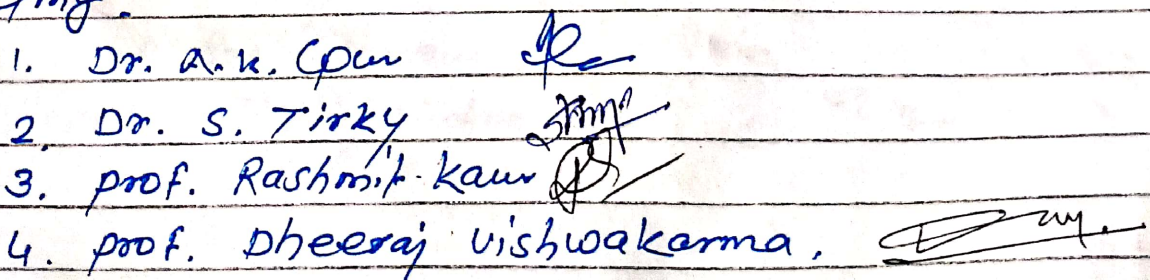 1. Dr. A.K.
2. Dr. S. Tirky
3. prof. Rashmit Kaur
4. prof. Dheeraj vishwakarma.